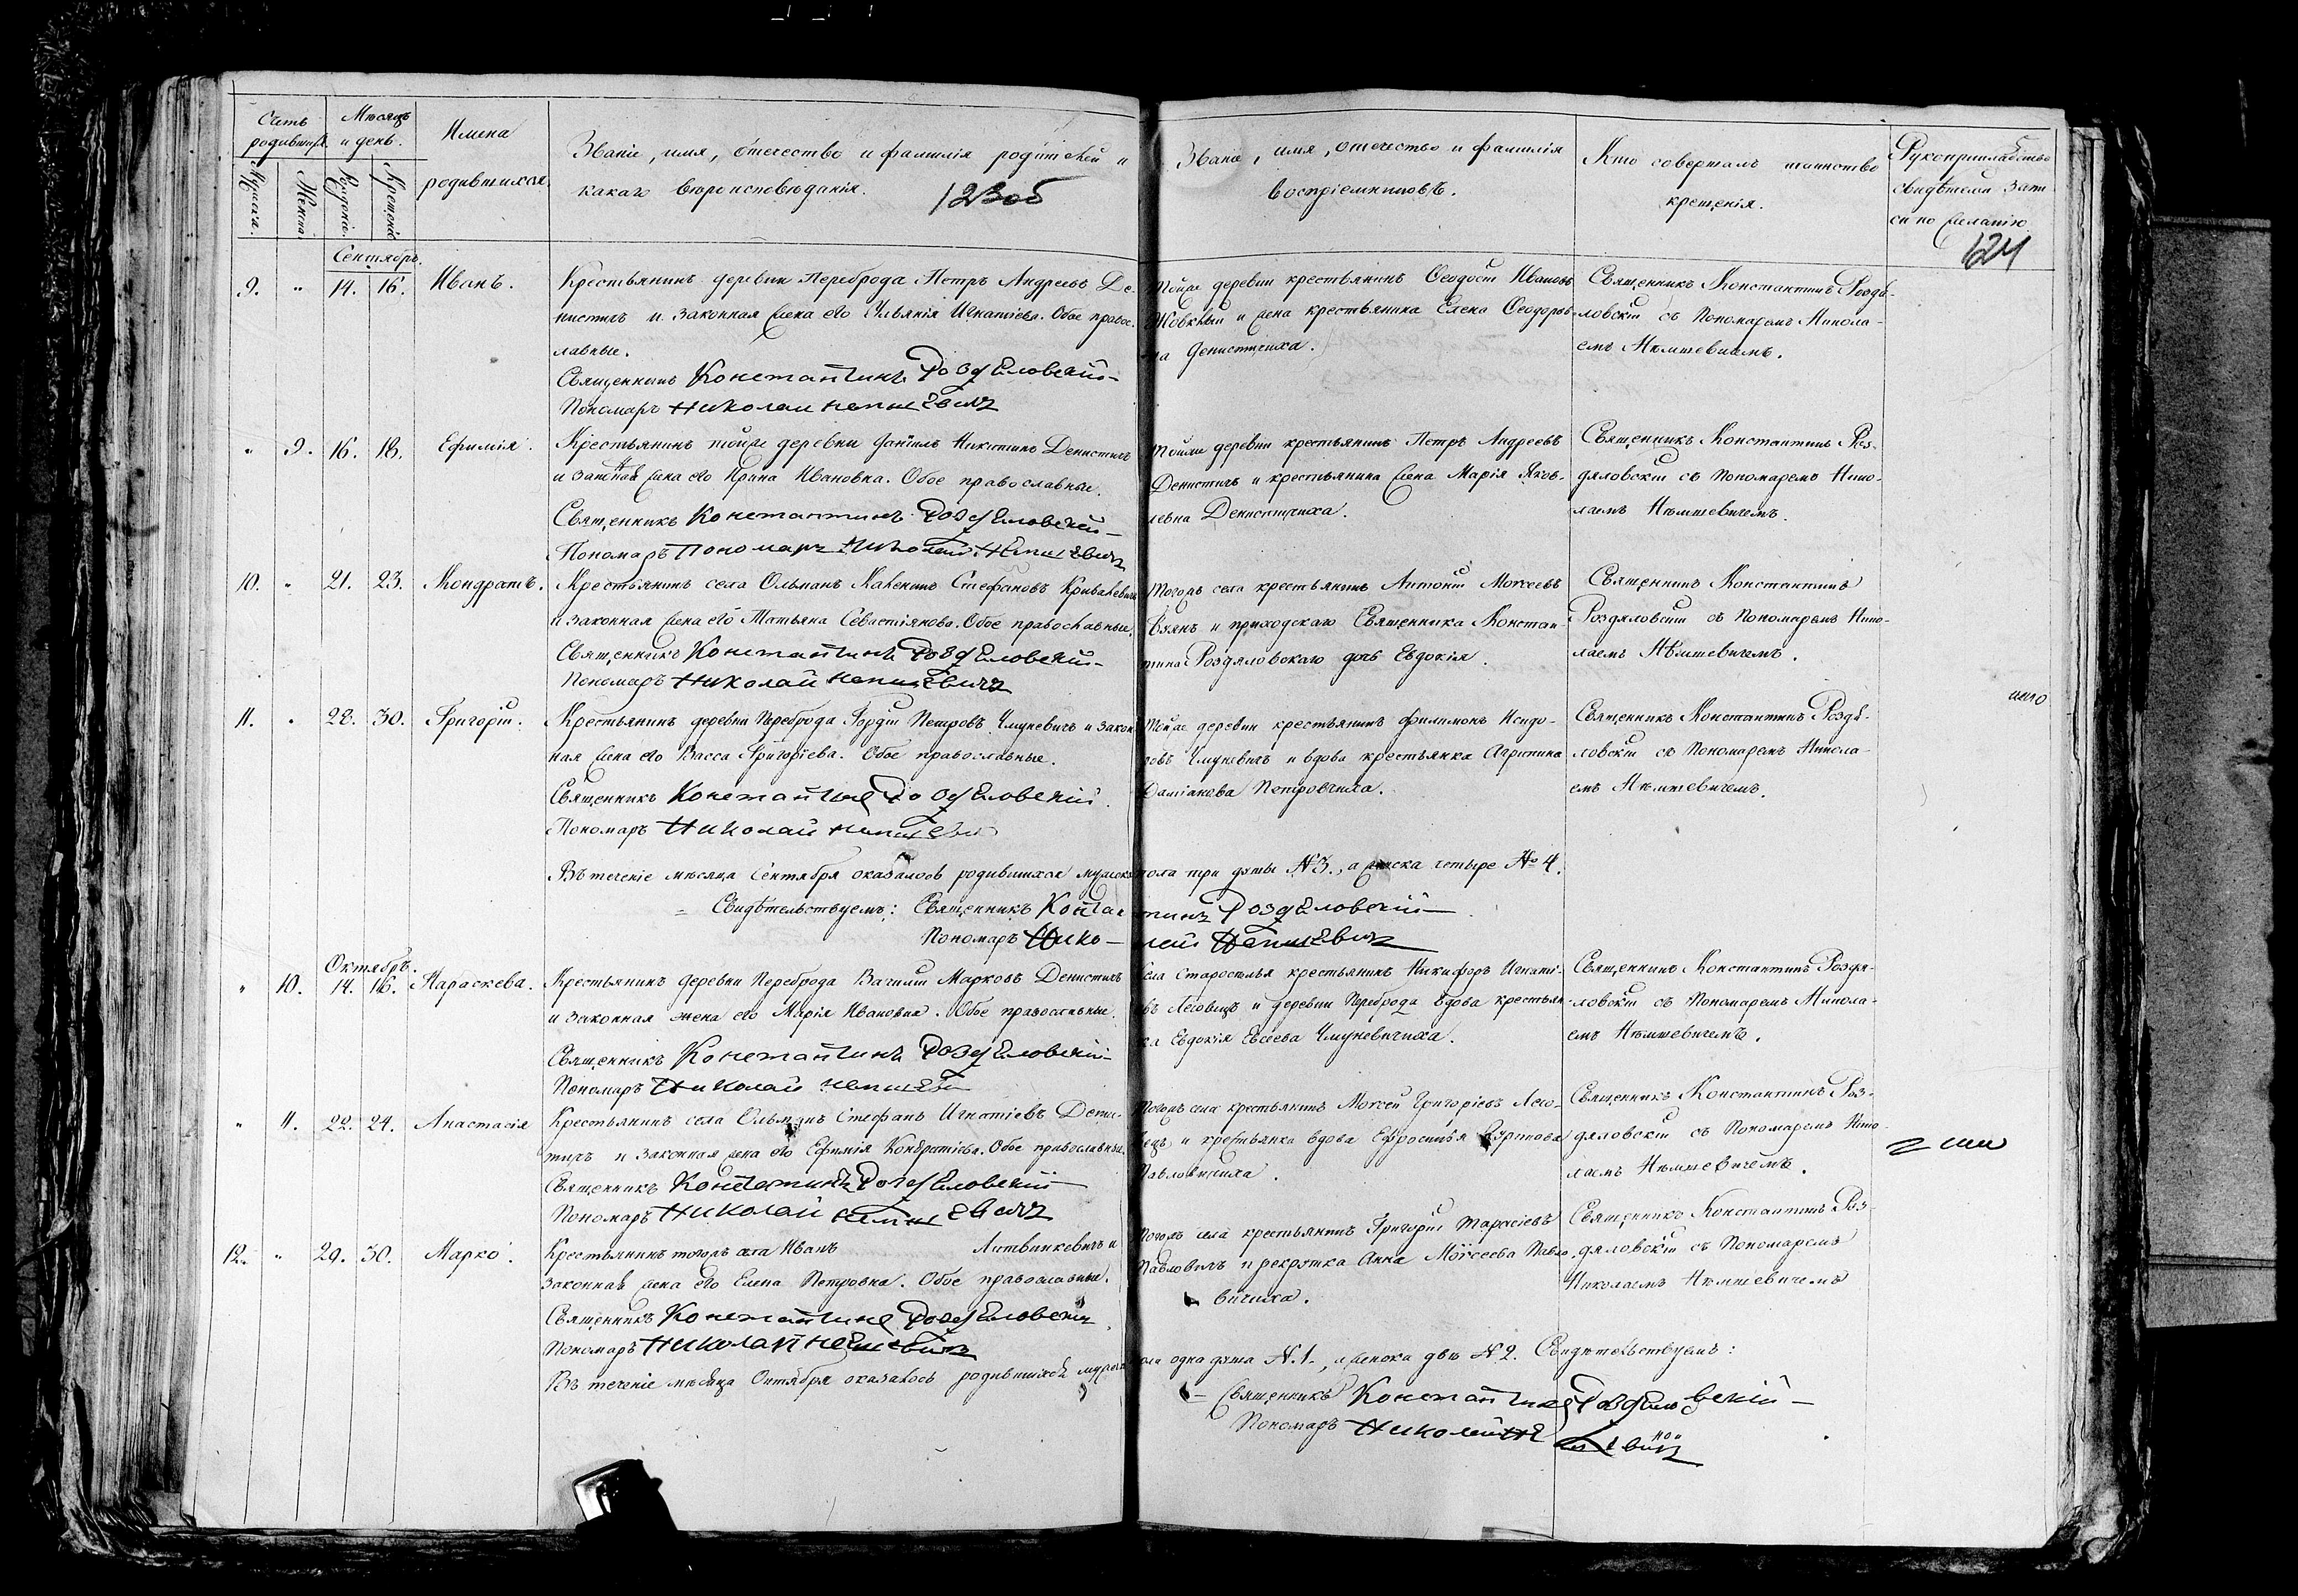 Счетъ родившихся.
Мѣсяцъ и день.
Имена родившихся
Званіе, имя, отчество и фамилія родителей и
какаго вѣроисповѣданія.
Званіе, имя, отчество и фамилія
воспріемниковъ.
Кто совершалъ таинство
крещенія.
Рукоприкладство
свидѣтелей запи
си по желанію
Мужеска. Женска. Рожденіе. Крещеніе
624
Сентябрь.
9. " 14. 16. Иванъ. Крестьянинъ деревни Переброда Петръ Андреевъ Де-
нисичъ и законная жена его Игнатіева. Обое правос-
лавные.
Священникъ Константинъ Роздѣловский
Пономарь Николай
Тойже деревни крестьянинъ Феодосій Ивановъ
Жовклый и жена крестьянина Елена Феодоров-
на
Священникъ Константинъ Роздѣ-
ловскій съ Пономаремъ Никола-
емъ Нѣмшевичемъ.
" 9. 16. 18. Ефимія. Крестьянинъ тойже деревни Даніилъ Никитинъ Денисичъ
и законная жена его Ирина Ивановна. Обое православные.
Священникъ Константинъ Роздѣловский
Пономарь Пономарь Николай
Тойже деревни крестьянинъ Петръ Андреевъ
Денисичъ и крестьянина жена Марія Яков-
левна
Священникъ Константинъ Роз-
дяловскій съ Пономаремъ Нико-
лаемъ Нѣмшевичемъ.
10. " 21. 23. Кондратъ. Крестьянинъ села Ольманъ Стефановъ Кривалевичъ
и законная жена его Татьяна Севастіянова. Обое православные.
Священникъ Константинъ Роздѣловский
Пономарь Николай
Тогожъ села крестьянинъ Антоній Моисеевъ
и приходскаго Священника Констан-
тина Роздяловскаго дочь Евдокія.
Священникъ Константинъ
Роздяловскій съ Пономаремъ Нико-
лаемъ Нѣмшевичемъ.
11. " 28. 30. Григорій. Крестьянинъ деревни Переброда Гордій Петровъ Чмуневичъ и закон-
ная жена его Васса Григоріева. Обое православные.
Священникъ Константинъ Роздѣловский
Пономарь Николай
Тойже деревни крестьянинъ Филимонъ Исидо-
ровъ Чмуневичъ и вдова крестьянка Агрипина
Даміанова Петровчиха.
Священникъ Константинъ Роздѣ-
ловскій съ Пономаремъ Никола-
емъ Нѣмшевичемъ.
Въ теченіе мѣсяца Сентября оказалось родившихся мужеска пола три душы №3., а женска четыре №4.
Свидѣтельствуемъ: Священникъ Константинъ Роздѣловский
Пономарь Николай
Октябрь.
" 10. 14. 16. Параскева. Крестьянинъ деревни Переброда Василій Марковъ Денисичъ
и законная жена его Марія Ивановна. Обое православные.
Священникъ Константинъ Роздѣловский
Пономарь Николай
Села Староселья крестьянинъ Никифоръ Игнаті-
евъ Леговецъ и деревни Переброда вдова крестьян-
ка Евдокія Евсеева Чмуневичиха.
Священникъ Константинъ Роздя-
ловскій съ Пономаремъ Никола-
емъ Нѣмшевичемъ.
" 11. 22. 24. Анастасія Крестьянинъ села Ольманъ Стефанъ Игнатіевъ Дени-
и законная жена его Ефимія Кондратіева. Обое православные.
Священникъ Константинъ Роздѣловский
Пономарь Николай
Тогожъ села крестьянинъ Моисей Григоріевъ Лего-
вецъ и крестьянка вдова Ефросинья
Павловичиха.
Священникъ Константинъ Роз-
дяловскій съ Пономаремъ Нико-
лаемъ Нѣмшевичемъ.
12. " 29. 30. Марко. Крестьянинъ тогожъ села Иванъ Литвинкевичъ и
законная жена его Елена Петровна. Обое православные.
Священникъ Константинъ Роздѣловский
Пономарь Николай
Тогожъ села крестьянинъ Григорій Тарасіевъ
Павловичъ и рекрутка Анна Моисеева Павло-
вичиха.
Священникъ Константинъ Роз-
дяловскій съ Пономаремъ
Николаемъ Нѣмшевичемъ
Въ теченіе мѣсяца Октября оказалось родившихся мужеска пола одна душа №1., а женска двѣ №2. Свидѣтельствуемъ:
Священникъ Константинъ Роздѣловский
Пономарь Николай